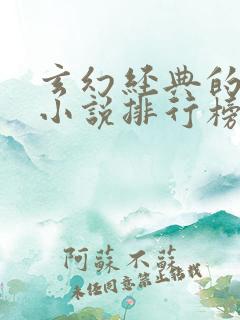 玄幻经典的
小说排行榜
阿蘇不蘇
未經同意禁止轉載